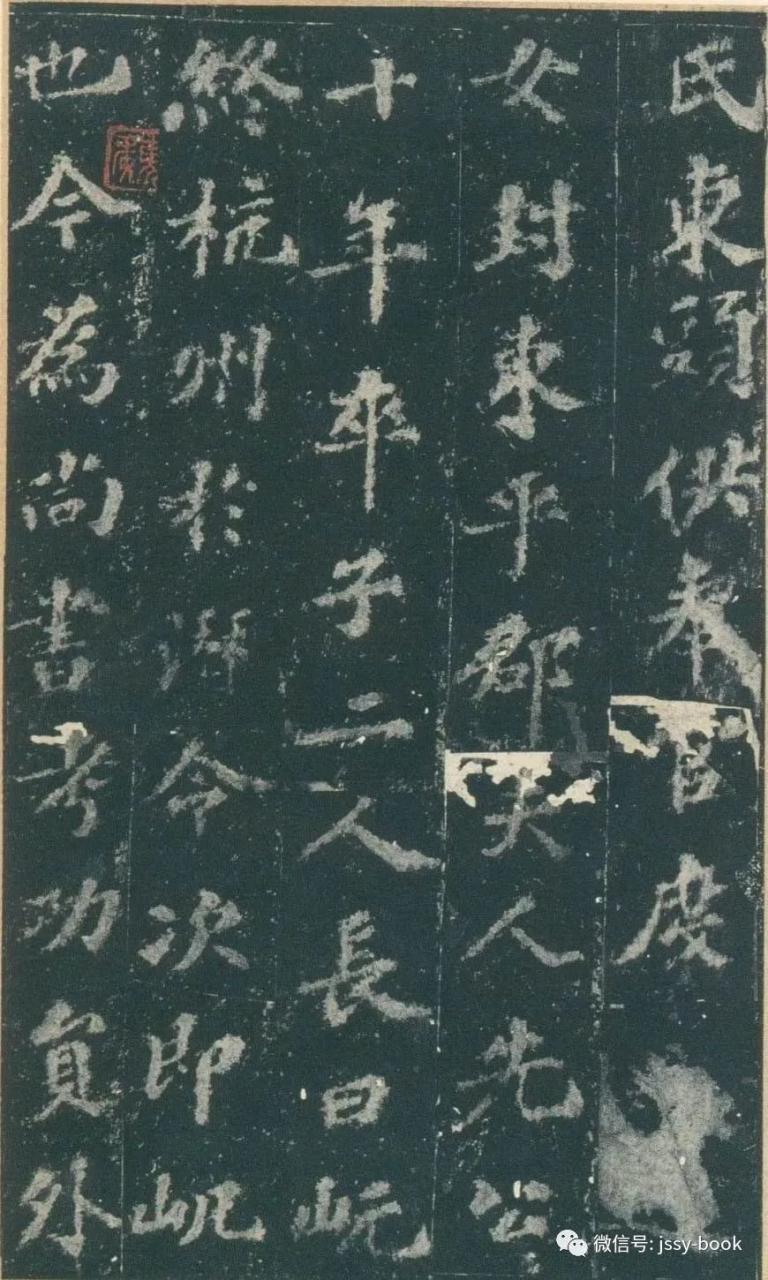 氏東頭供奉官度
女封東平郡夫人先公
十年卒子二人長曰岏
終杭州於潛令次即屼
也今為尚書考功員外
微信号: jssy-book